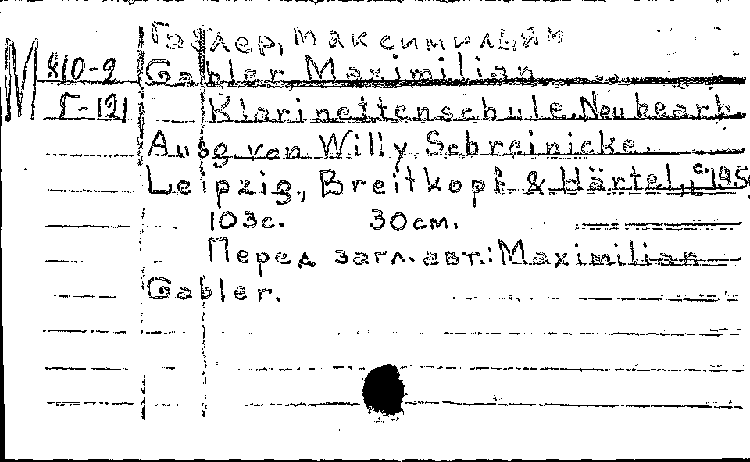 Габлер, Максимильян
M 810-9 Gabler Maximilian
Г-121 Klarinettenschule. Neubearb.
Ausg von Willy Schreinicke.
Leipzig, Breitkopf & Härtel, c. 195
103с. 30см.
Перед загл. авт.: Maximilian
Gabler.